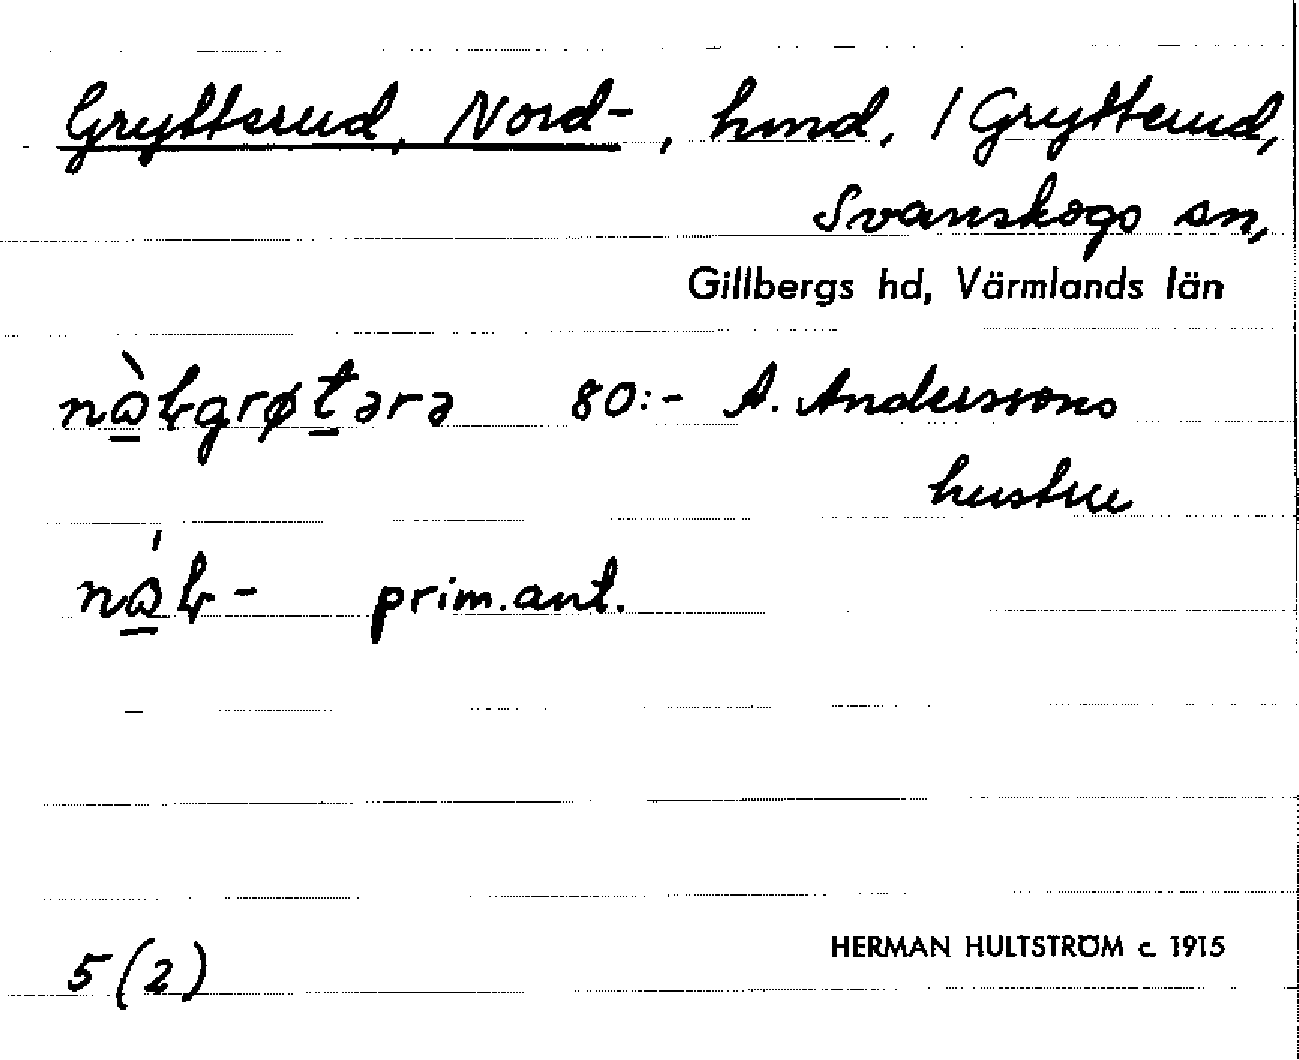 Grytterud, Nord-, hmd, / Grytterud,
Svanskogs sn,
Gillbergs hd, Värmlands län
80:- A. Anderssons
hustru
prim.ant.
5(2)
HERMAN HULTSTRÖM c. 1915